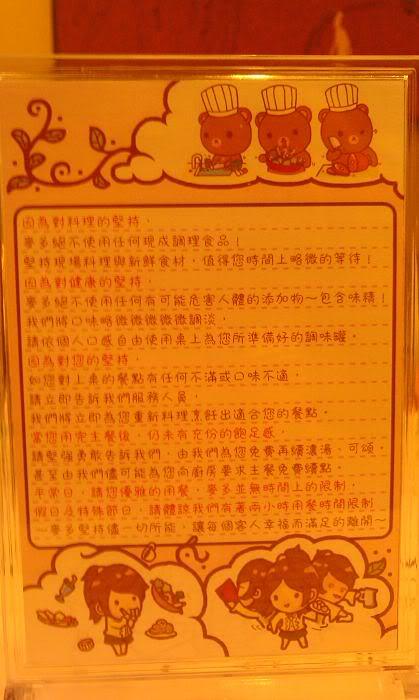 因為對料理的堅持，
麥多絕不使用任何現成調理食品！
堅持現場料理與新鮮食材，值得您時間上略微的等待！
因為對健康的堅持，
麥多絕不使用任何有可能危害人體的添加物～包含味精！
我們將口味略微微微微微調淡，
請依個人口感自由使用桌上為您所準備好的調味罐。
因為對您的堅持，
如您對上桌的餐點有任何不滿或口味不適，
請立即告訴我們服務人員，
我們將立即為您重新料理烹飪出適合您的餐點。
當您用完主餐後，仍未有充份的飽足感，
請堅強勇敢告訴我們，由我們為您免費再續濃湯、可頌，
甚至由我們儘可能為您向廚房要求主餐免費續點。
平常日，請您優雅的用餐，麥多並無時間上的限制，
假日及特殊節日，請體諒我們有著兩小時用餐時間限制
～麥多堅持儘一切所能，讓每個客人幸福而滿足的離開～